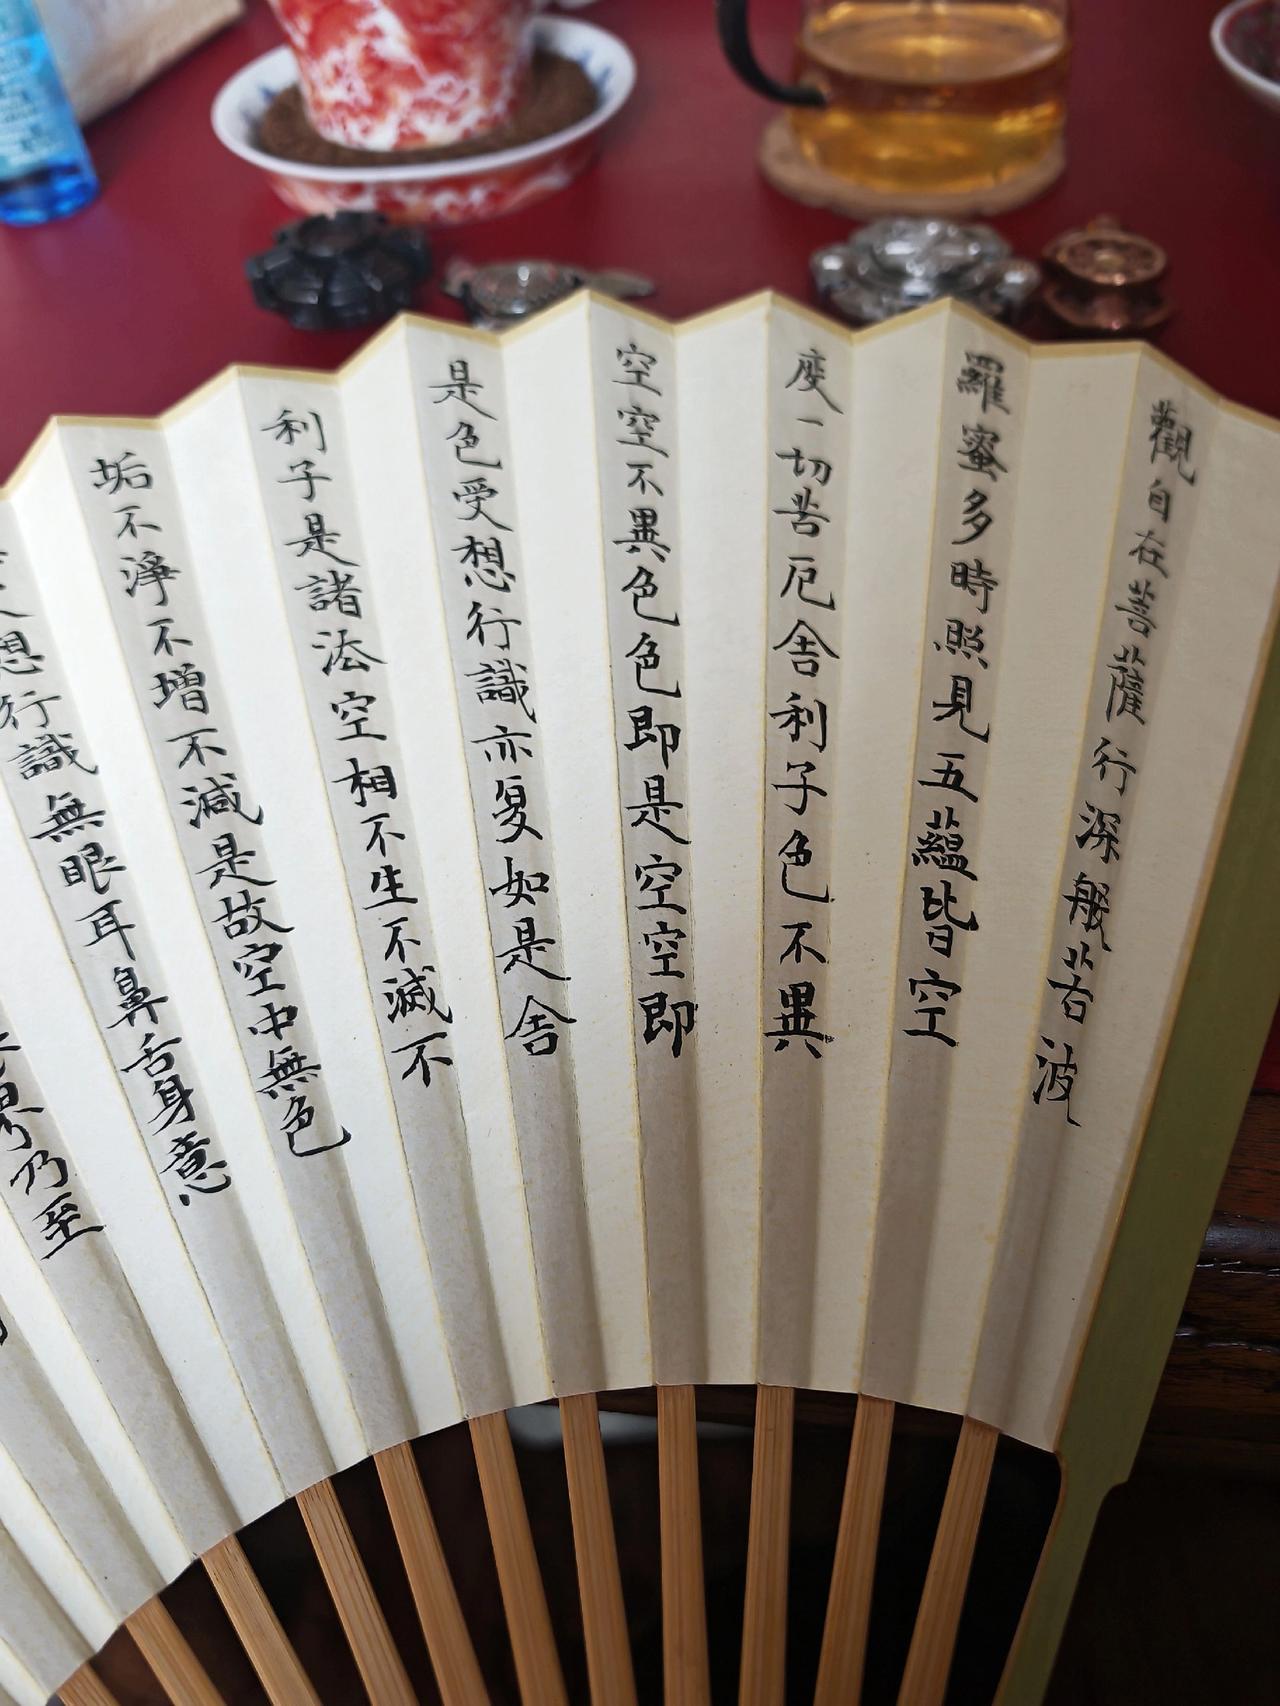 觀自在菩薩行深般若波
羅蜜多時照見五蘊皆空
度一切苦厄舍利子色不異
空空不異色色即是空空即
是色受想行識亦复如是舍
利子是諸法空相不生不滅不
垢不淨不增不減是故空中無色
想行識無眼耳鼻舌身意
界乃至